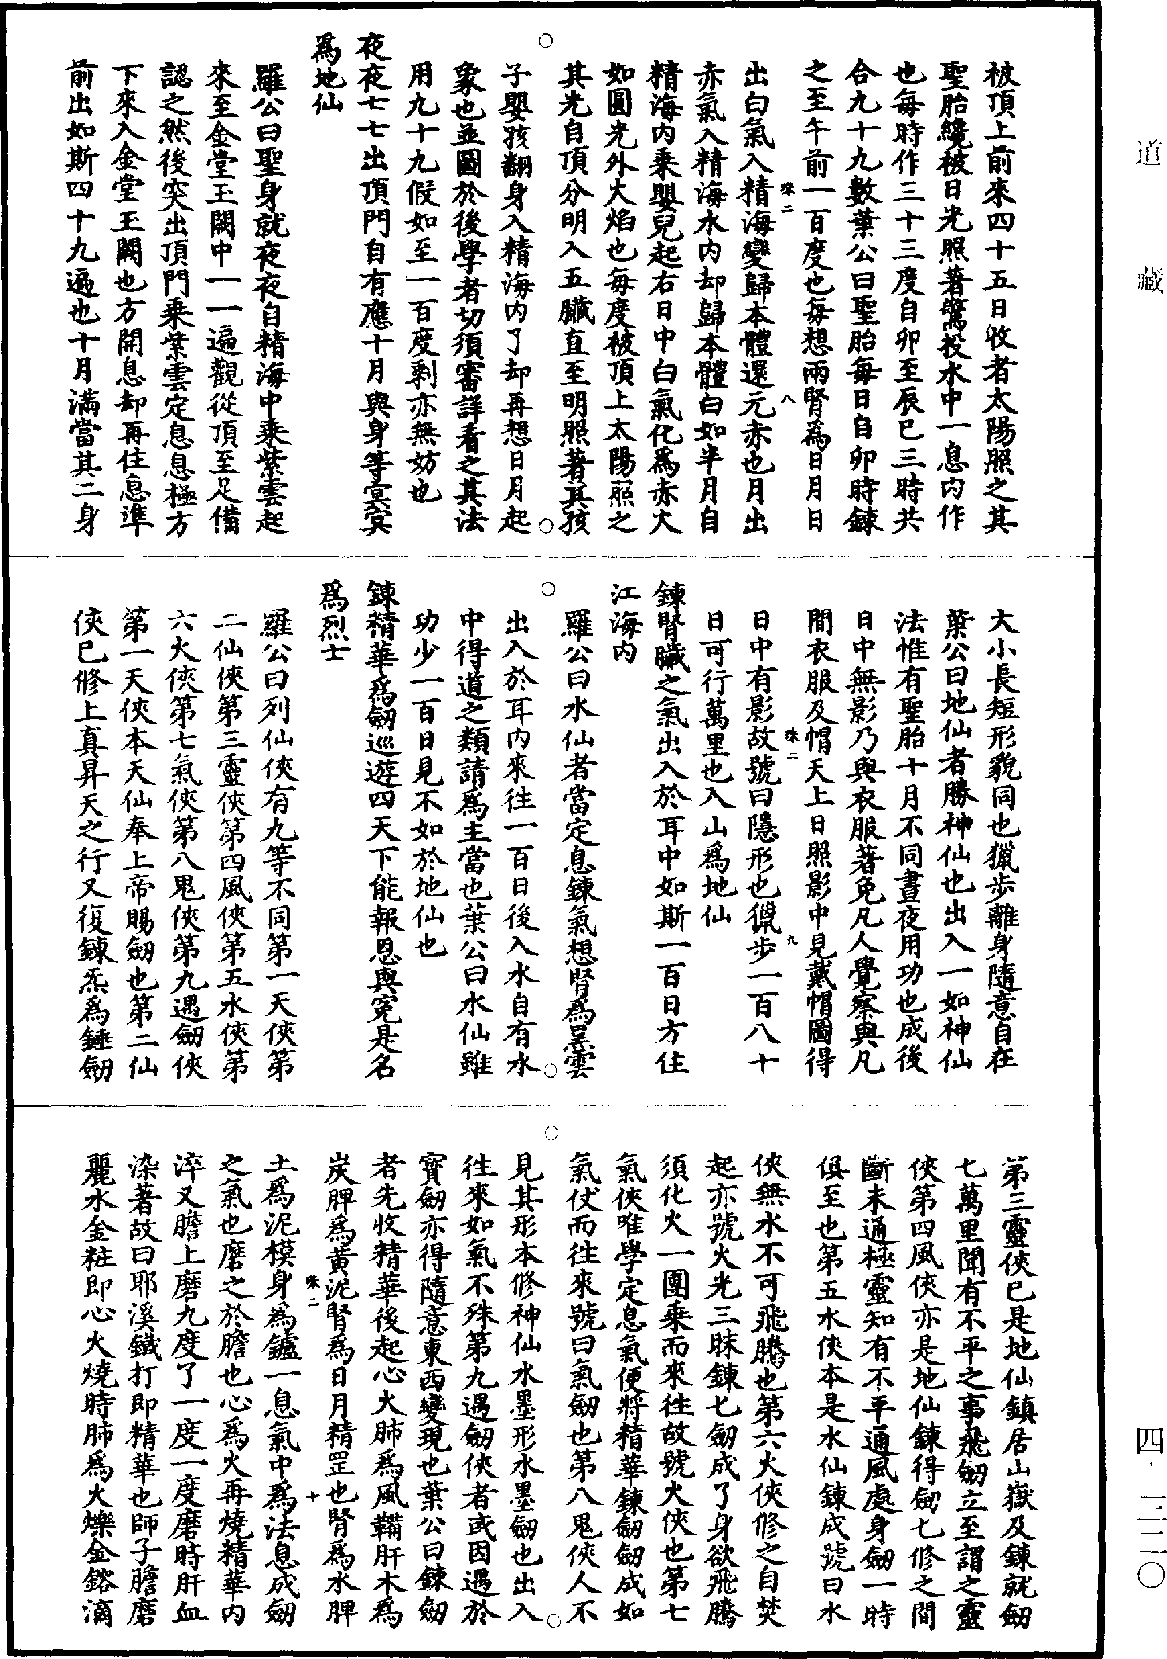 道藏
四·三二〇
被頂上前來四十五日收者太陽照之其
聖胎纔被日光照著驚投水中一息内作
也每時作三十三度自卯至辰巳三時共
合九十九數葉公曰聖胎每日自卯時鍊
之至午前一百度也每想兩腎為日月日
珠二
八
出白氣入精海變歸本體還元赤也月出
赤氣入精海水内却歸本體白如半月自
精海内乘嬰兒起右日中白氣化為赤大
如圓光外火焰也每度被頂上太陽照之
其光自頂分明入五臟直至明照著其孩
子嬰孩翻身入精海内了却再想日月起
象也並圖於後學者切須審詳看之其法
用九十九假如至一百度剩亦無妨也
夜夜七七出頂門自有應十月與身等冥冥
為地仙
羅公曰聖身就夜夜自精海中乘紫雲起
來至金堂玉闕中一一遍觀從頂至足備
認之然後突出頂門乘紫雲定息息極方
下來入金堂玉闕也方開息却再住息準
前出如斯四十九遍也十月滿當其二身
大小長短形貌同也獵步離身隨意自在
葉公曰地仙者勝神仙也出入一如神仙
法惟有聖胎十月不同晝夜用功也成後
日中無影乃與衣服著免凡人覺察與凡
間衣服及帽天上日照影中見戴帽圖得
珠二
九
日中有影故號曰隱形也獵步一百八十
日可行萬里也入山為地仙
鍊腎臟之氣出入於耳中如斯一百日方住
江海内
羅公曰水仙者當定息鍊氣想腎為黑雲
出入於耳内來往一百日後入水自有水
中得道之類請為主當也葉公曰水仙雖
功少一百日見不如於地仙也
鍊精華為劒巡遊四天下能報恩與冤是名
為烈士
羅公曰列仙俠有九等不同第一天俠第
二仙俠第三靈俠第四風俠第五水俠第
六火俠第七氣俠第八鬼俠第九遇劒俠
第一天俠本天仙奉上帝賜劒也第二仙
俠已修上真昇天之行又復鍊炁為錘劒
第三靈俠已是地仙鎮居山嶽及鍊就劒
七萬里聞有不平之事飛劒立至謂之靈
俠第四風俠亦是地仙鍊得劒七修之間
斷未通極靈知有不平通風處身劒一時
俱至也第五水俠本是水仙鍊成號曰水
俠無水不可飛騰也第六火俠修之自焚
起亦號火光三昧鍊七劒成了身欲飛騰
須化火一團乘而來往故號火俠也第七
氣俠唯學定息氣便將精華鍊劒劒成如
氣仗而往來號曰氣劒也第八鬼俠人不
見其形本修神仙水墨形水墨劒也出入
往來如氣不殊第九遇劒俠者或因遇於
寶劒亦得隨意東西變現也葉公曰鍊劒
者先收精華後起心火肺為風鞴肝木為
炭脾為黃泥腎為日月精罡也腎為水脾
珠二
十
土為泥模身為鑪一息氣中為法息成劒
之氣也磨之於膽也心為火再燒精華内
淬又膽上磨九度了一度一度磨時肝血
染著故曰耶溪鐵打即精華也師子膽磨
麗水金粧即心火燒時肺為火爍金鎔滴